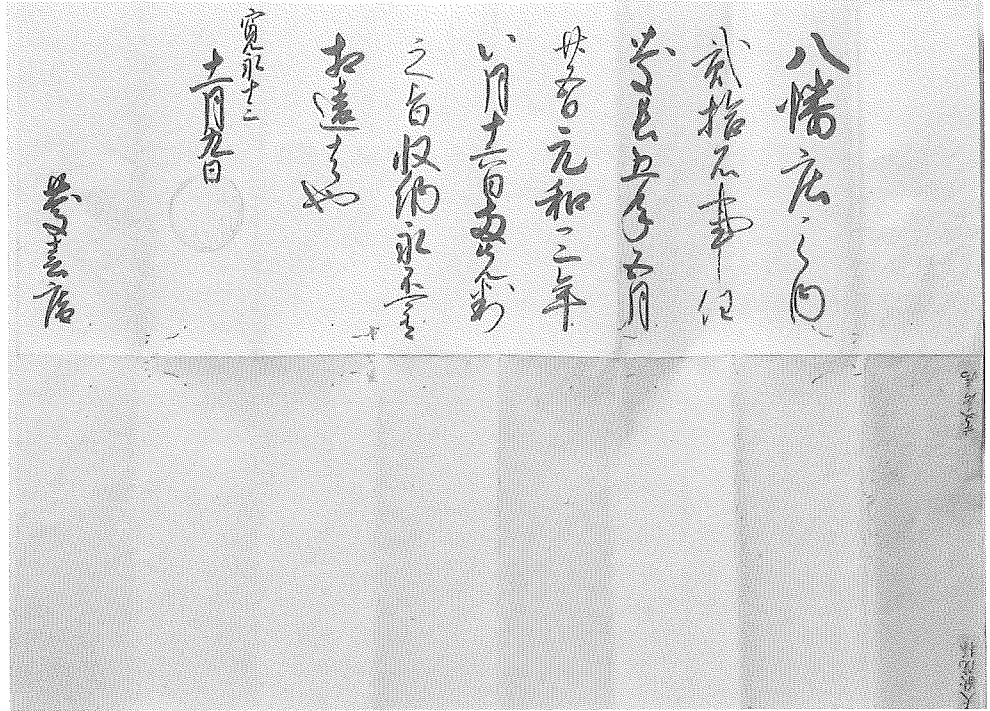 八幡庄之内
貳拾石事任
慶長五年五月
廿五日元和三年
七月十六日両先判
之旨収納永不可有
相違者也
寛永十二
十一月九日